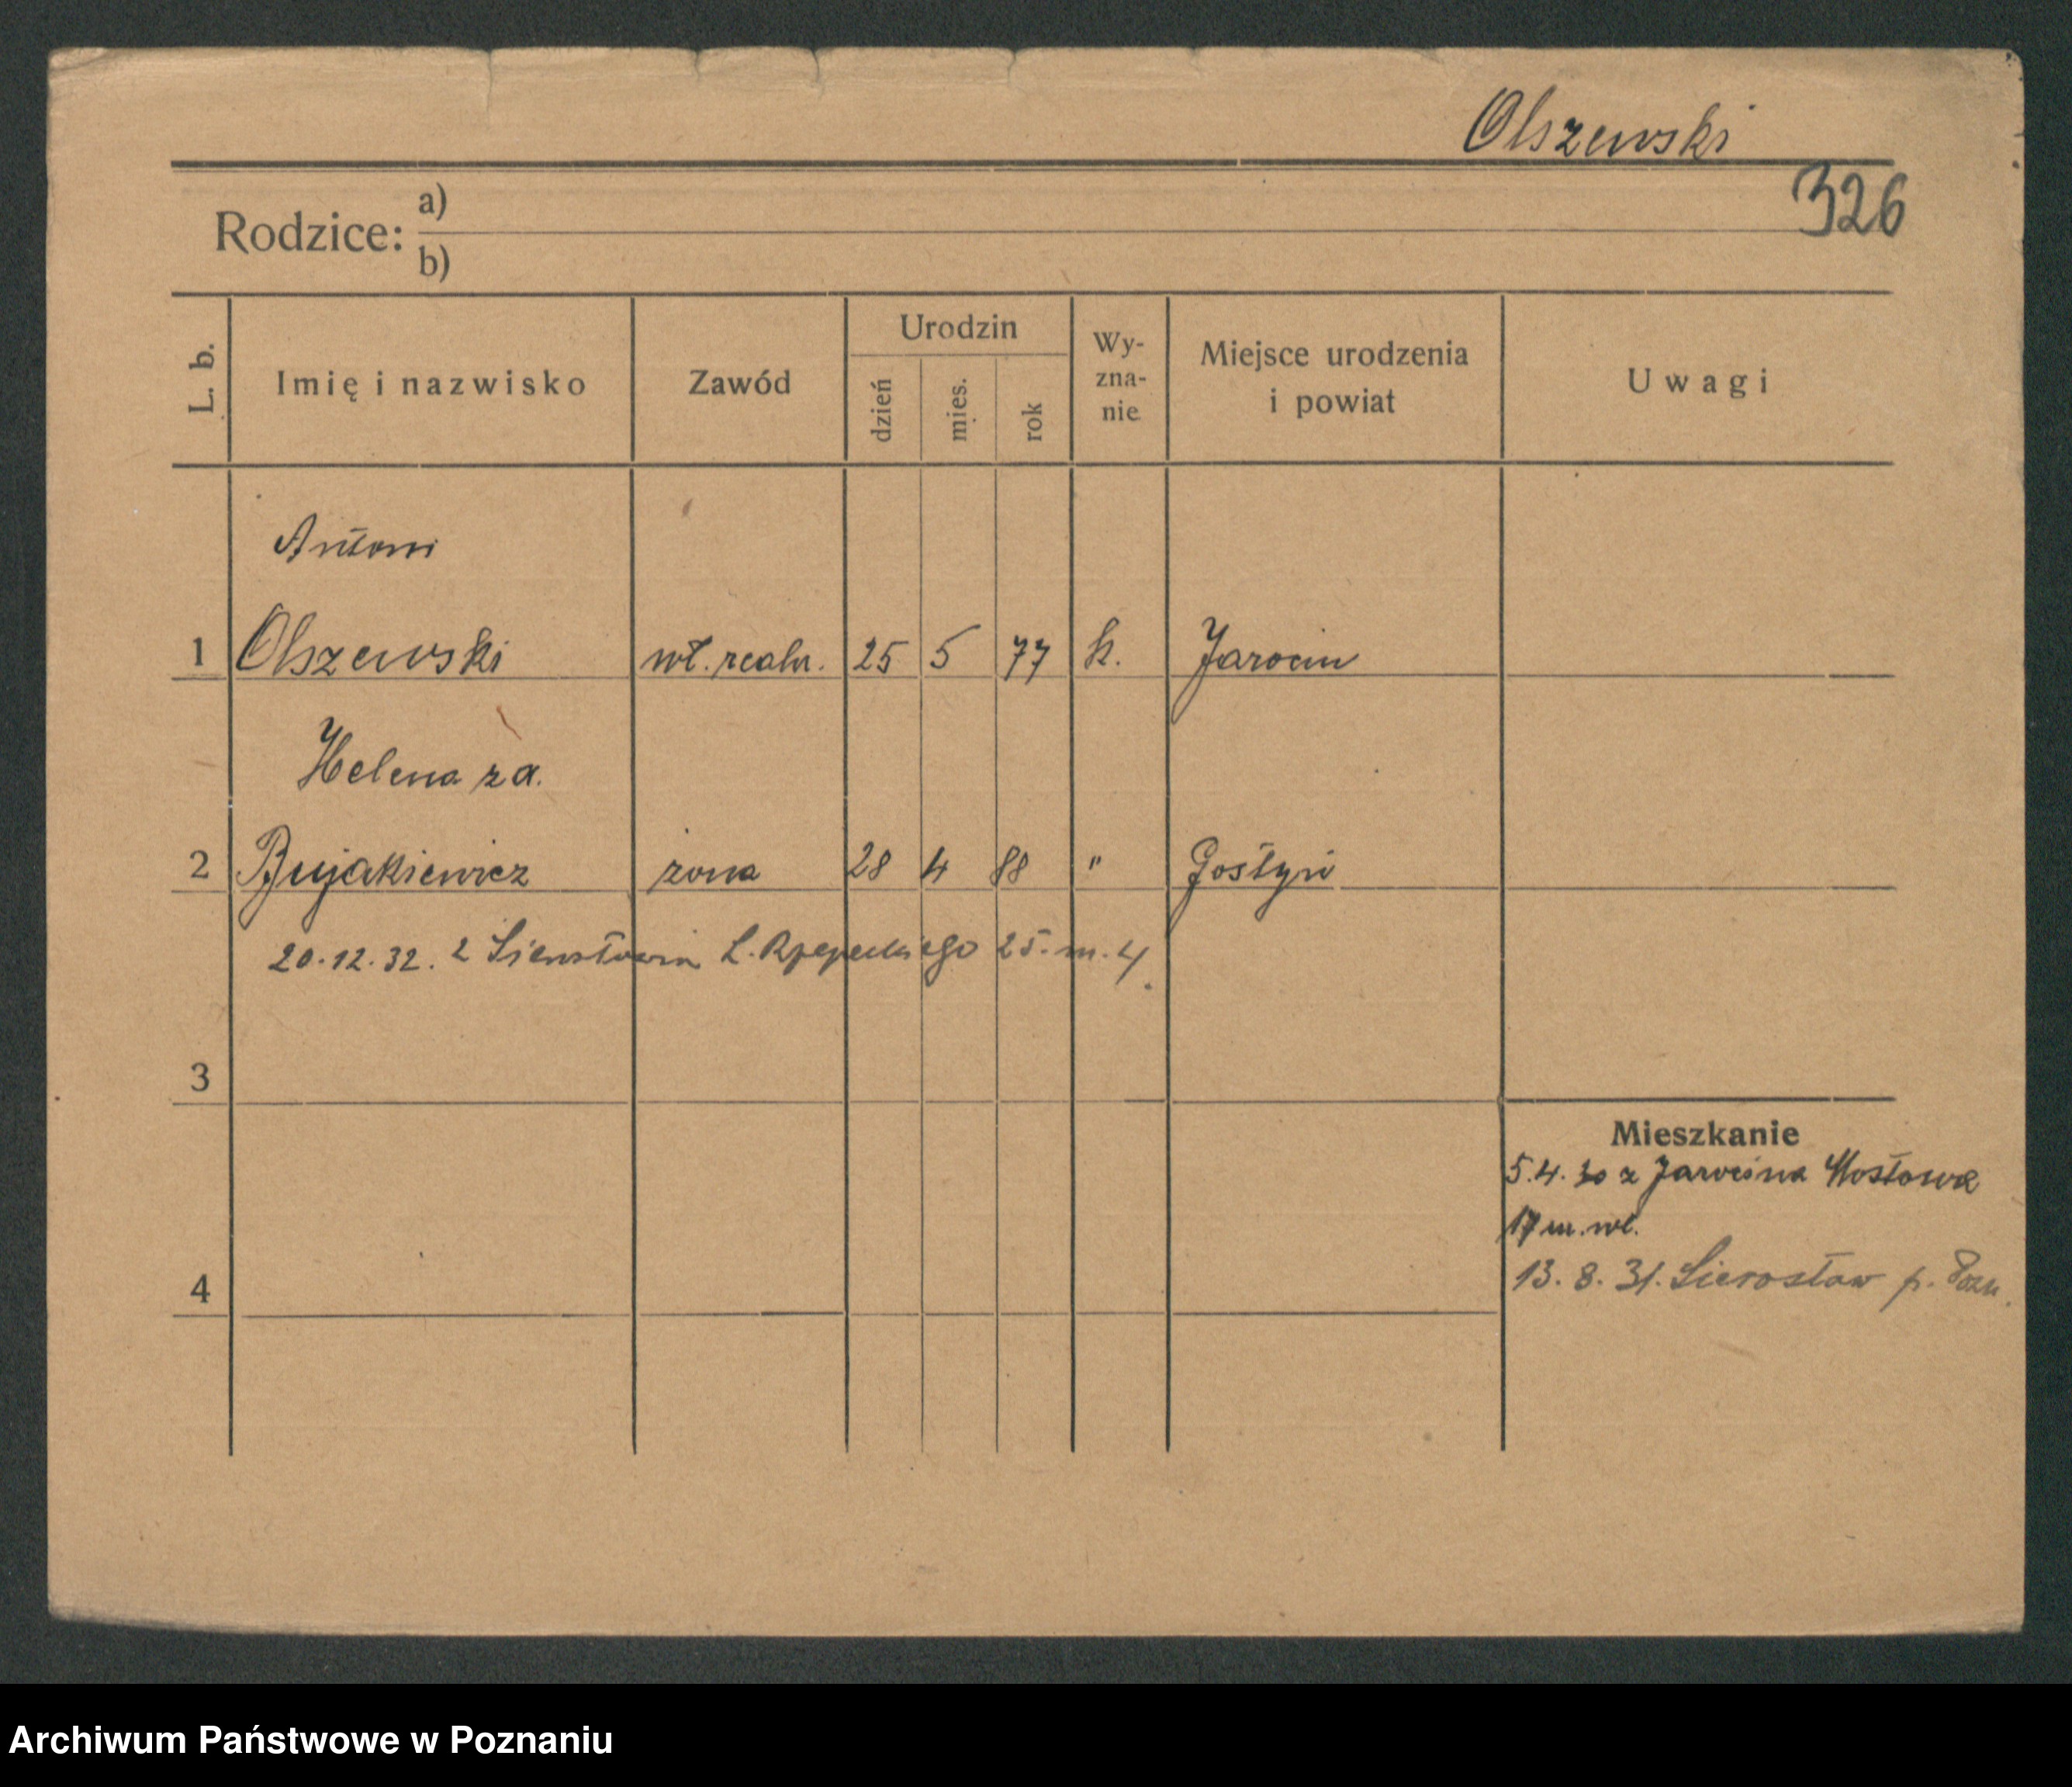 Olszewski
326
Rodzice: a)
b)
L. b. Imię i nazwisko Zawód Urodzin dzień mies. rok Wy-zna-nie Miejsce urodzenia i powiat Uwagi
Antoni
1 Olszewski wł. realn. 25 5 77 k. Jarocin
Helena za.
2 Bujakiewicz żona 28 4 88 " Gostyń
20.12.32. z L. Rzepeckiego 25. m. 4.
3
Mieszkanie
5.4.30 z Jarocina Mostowa
17 m. wł.
13. 8. 31. Sierosław p. Pozn.
4
Archiwum Państwowe w Poznaniu